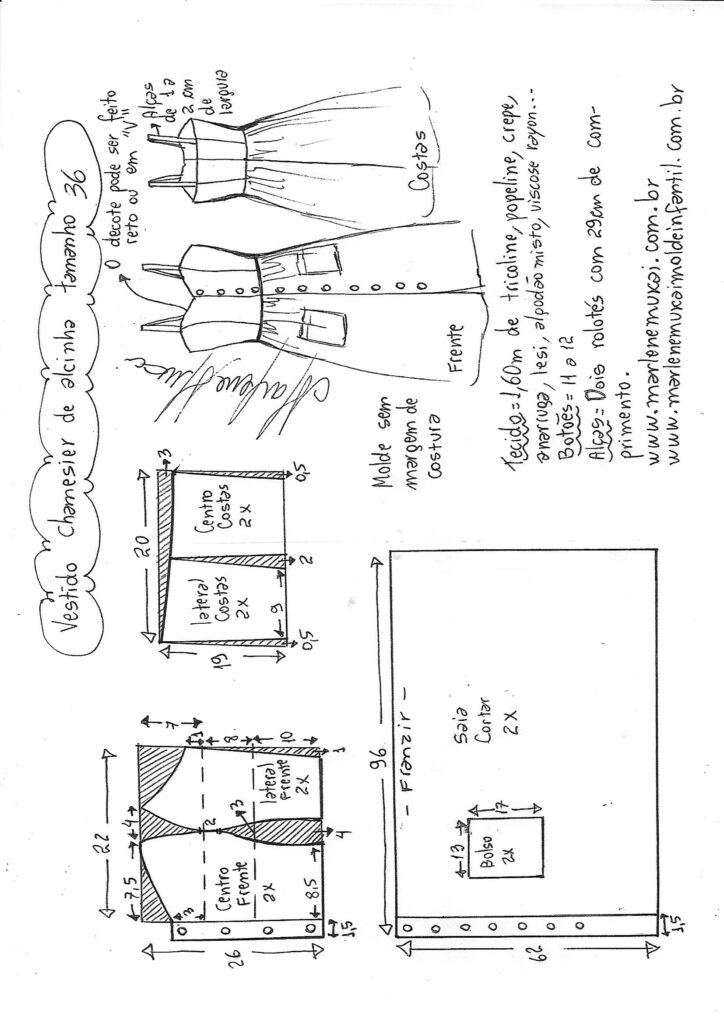 Vestido chamesier de alcinha tamanho 36
O decote pode ser feito
reto ou em "V"
Alças
de 1 a
2 cm
de
largura
Costas
Frente
22
7,5
4
7
3
1
2
8
3
10
1
4
8,5
26
1,5
Centro
Frente
2x
lateral
Frente
2x
20
3
19
0,5
9
2
0,5
lateral
Costas
2x
Centro
Costas
2x
Molde sem
margem de
costura
96
- Franzir -
Saia
Cortar
2x
13
17
Bolso
2x
62
1,5
Tecido=1,60m de tricoline, popeline, crepe,
anarruga, lesi, algodão misto, viscose rayon...
Botões= 11 a 12
Alças= Dois rolotés com 29cm de com-
primento.
www.marlenemukai.com.br
www.marlenemukaimoldeinfantil.com.br